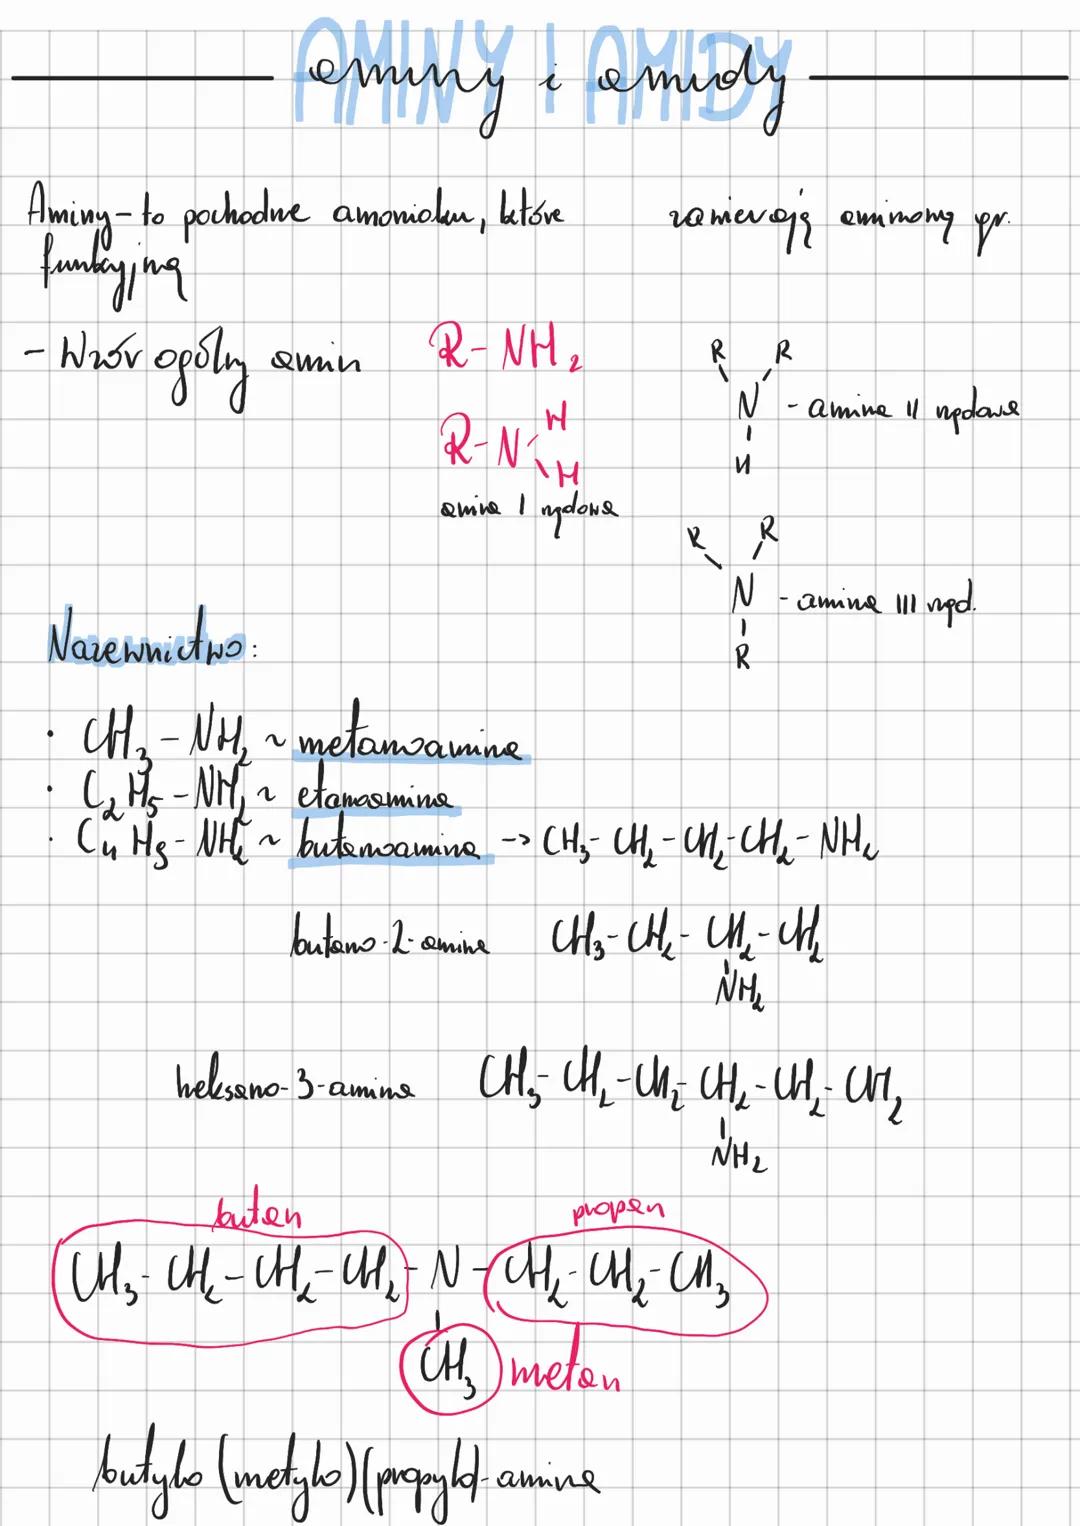 AMINY I AMIDY
aminy i amidy
Aminy - to pochodne amoniaku, które zawierają aminową gr.
funkcyjną
- Wzór ogólny amin R-NH2
R R
N - amina II rzędowa
H
R-N H
H
amina I rzędowa
R R
N - amina III rzęd.
R
Nazewnictwo:
· CH3-NH2 ~ metanoamina
· C2H5-NH2 ~ etanoamina
· C4H9-NH2 ~ butanoamina -> CH3-CH2-CH2-CH2-NH2
butano-2-amina CH3-CH2-CH2-CH2
NH2
heksano-3-amina CH3-CH2-CH2-CH2-CH2-CH2
NH2
butan propan
CH3-CH2-CH2-CH2-N-CH2-CH2-CH3
CH3 metan
butylo(metylo)(propylo)-amina